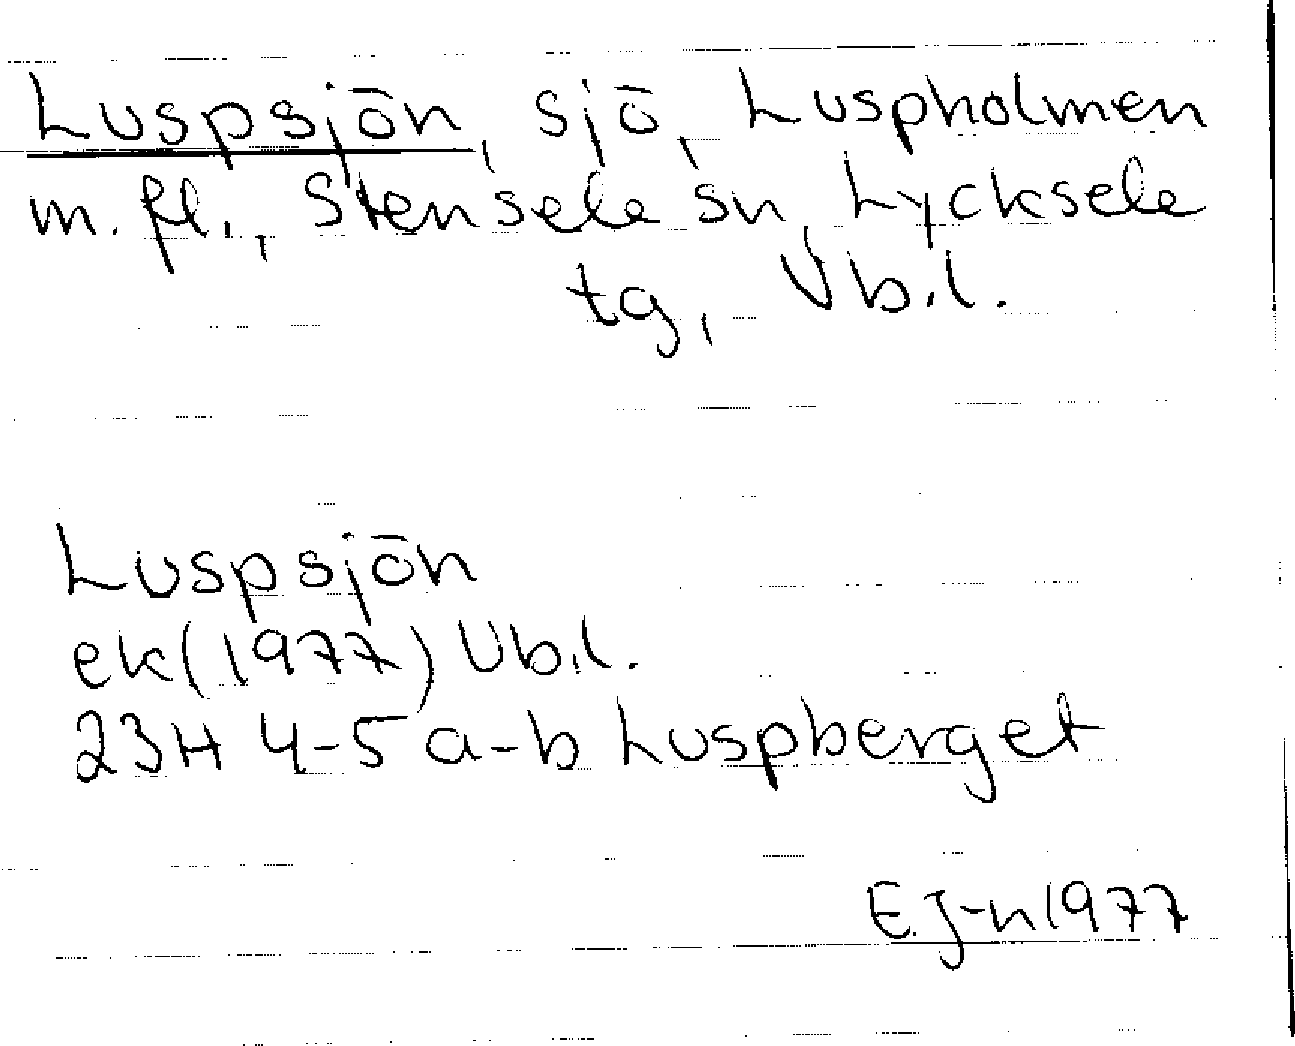 Luspsjön, sjö, Luspholmen
m. fl., Stensele sn, Lycksele
tg, Vb.l.
Luspsjön
ek(1977) Vb.l.
23H 4-5 a-b Luspberget
E.J-n 1977